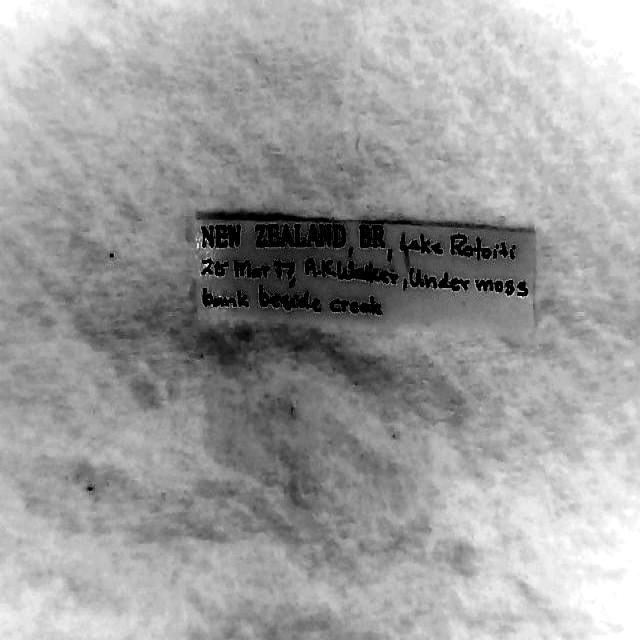 NEW ZEALAND, BR, Lake Rotoiti
25 Mar 77, A.K.Walker, Under moss
bank beside creek